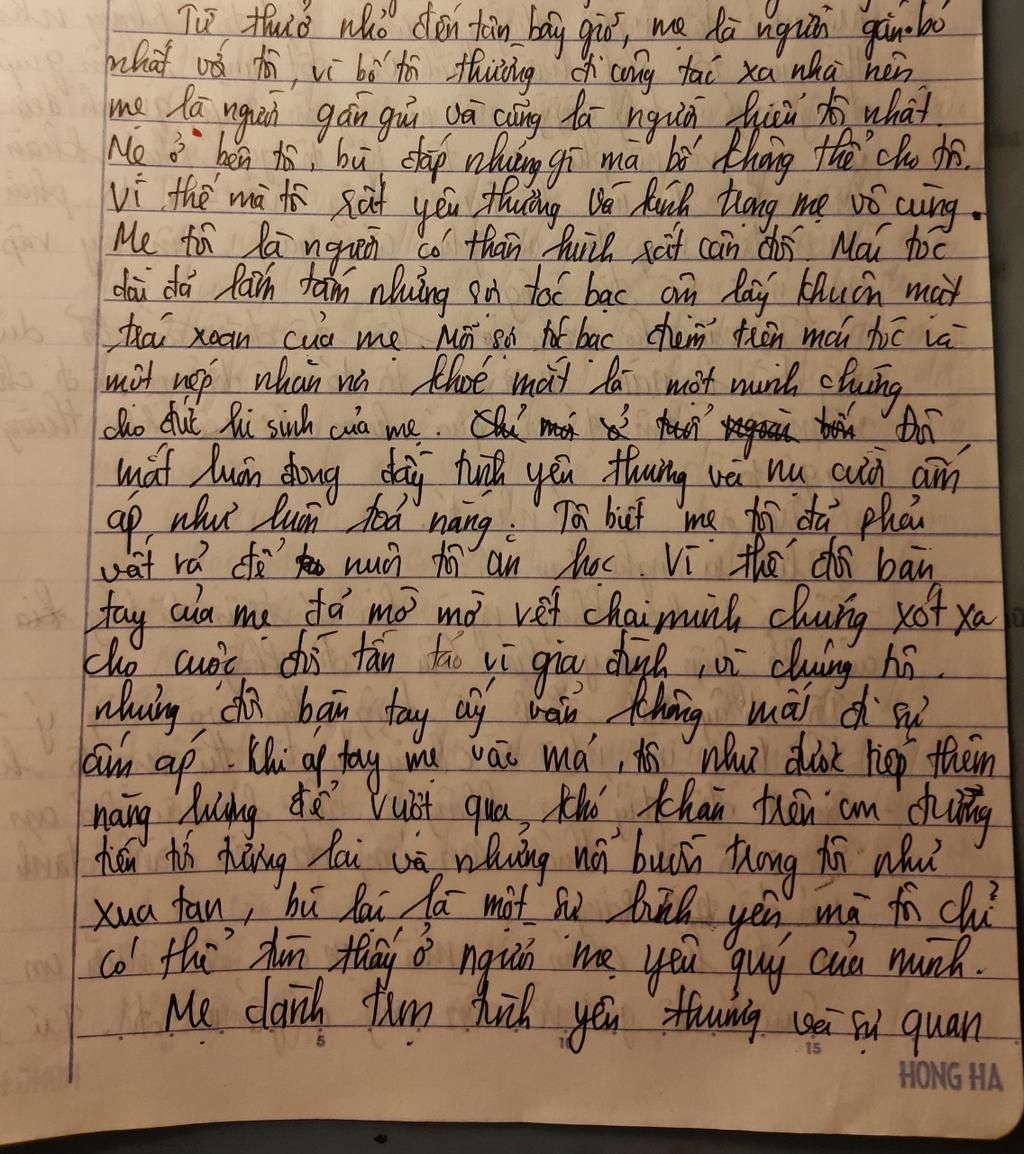 Từ thuở nhỏ đến tận bây giờ, mẹ là người gắn bó
nhất với tôi, vì bố tôi thường đi công tác xa nhà nên
mẹ là người gần gũi và cũng là người hiểu tôi nhất.
Mẹ ở bên tôi, bù đắp những gì mà bố không thể cho tôi.
Vì thế mà tôi rất yêu thương và kính trọng mẹ vô cùng.
Mẹ tôi là người có thân hình rất cân đối. Mái tóc
dài đã lấm tấm những sợi tóc bạc ôm lấy khuôn mặt
trái xoan của mẹ. Mỗi sợi tóc bạc điểm trên mái tóc và
một nếp nhăn nơi khoé mắt là một minh chứng
cho đức hi sinh của mẹ. Chỉ mới ở tuổi ngoài bốn Đôi
mắt luôn đong đầy tình yêu thương và nụ cười ấm
áp như luôn toả nắng. Tôi biết mẹ tôi đã phải
vất vả để nuôi tôi ăn học. Vì thế đôi bàn
tay của mẹ đã mờ mờ vết chai minh chứng xót xa
cho cuộc đời tần tảo vì gia đình, vì chúng tôi.
nhưng đôi bàn tay ấy vẫn không mất đi sự
ấm áp. Khi áp tay mẹ vào má, tôi như được tiếp thêm
năng lượng để vượt qua khó khăn trên con đường
tiến tới tương lai và những nỗi buồn trong tôi như
xua tan, bù lại là một sự bình yên mà tôi chỉ
có thể tìm thấy ở người mẹ yêu quý của mình.
Mẹ dành trọn tình yêu thương và sự quan
5 10 15
HONG HA